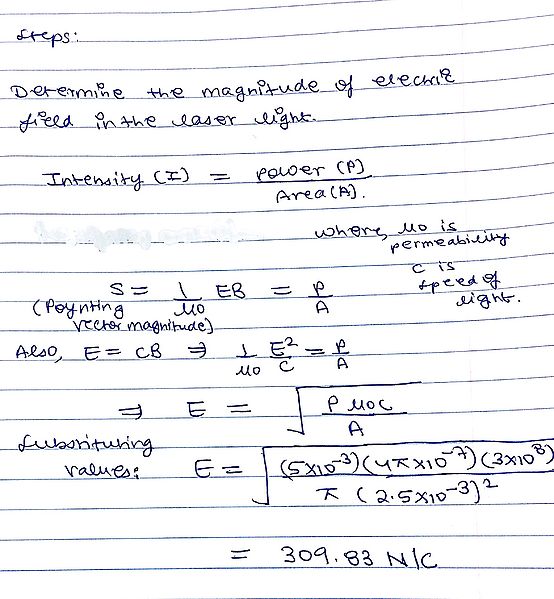 Steps:
Determine the magnitude of electric
field in the laser light.
Intensity (I) = Power (P) / Area (A).
where, μ0 is
permeability
c is
speed of
light.
S = 1/μ0 EB = P/A
(Poynting
vector magnitude)
Also, E = CB ⇒ 1/μ0 E²/C = P/A
⇒ E = √(P μ0 C / A)
Substituting
values: E = √((5×10⁻³)(4π×10⁻⁷)(3×10⁸) / π (2.5×10⁻³)²)
= 309.83 N/C